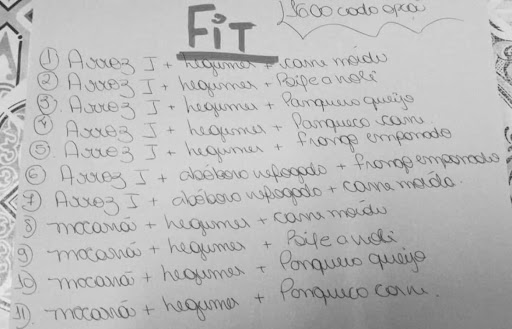 FIT
1600 cada opção
1 Arroz I + legumes + carne moída
2 Arroz I + legumes + Bife a rolê
3 Arroz I + legumes + Panqueca queijo
4 Arroz I + legumes + Panqueca carne
5 Arroz I + legumes + frango empanado
6 Arroz I + abóbora refogado + frango empanado
7 Arroz I + abóbora refogado + carne moída.
8 macarrão + legumes + carne moída
9 macarrão + legumes + Bife a rolê
10 macarrão + legumes + Panqueca queijo
11 macarrão + legumes + Panqueca carne.